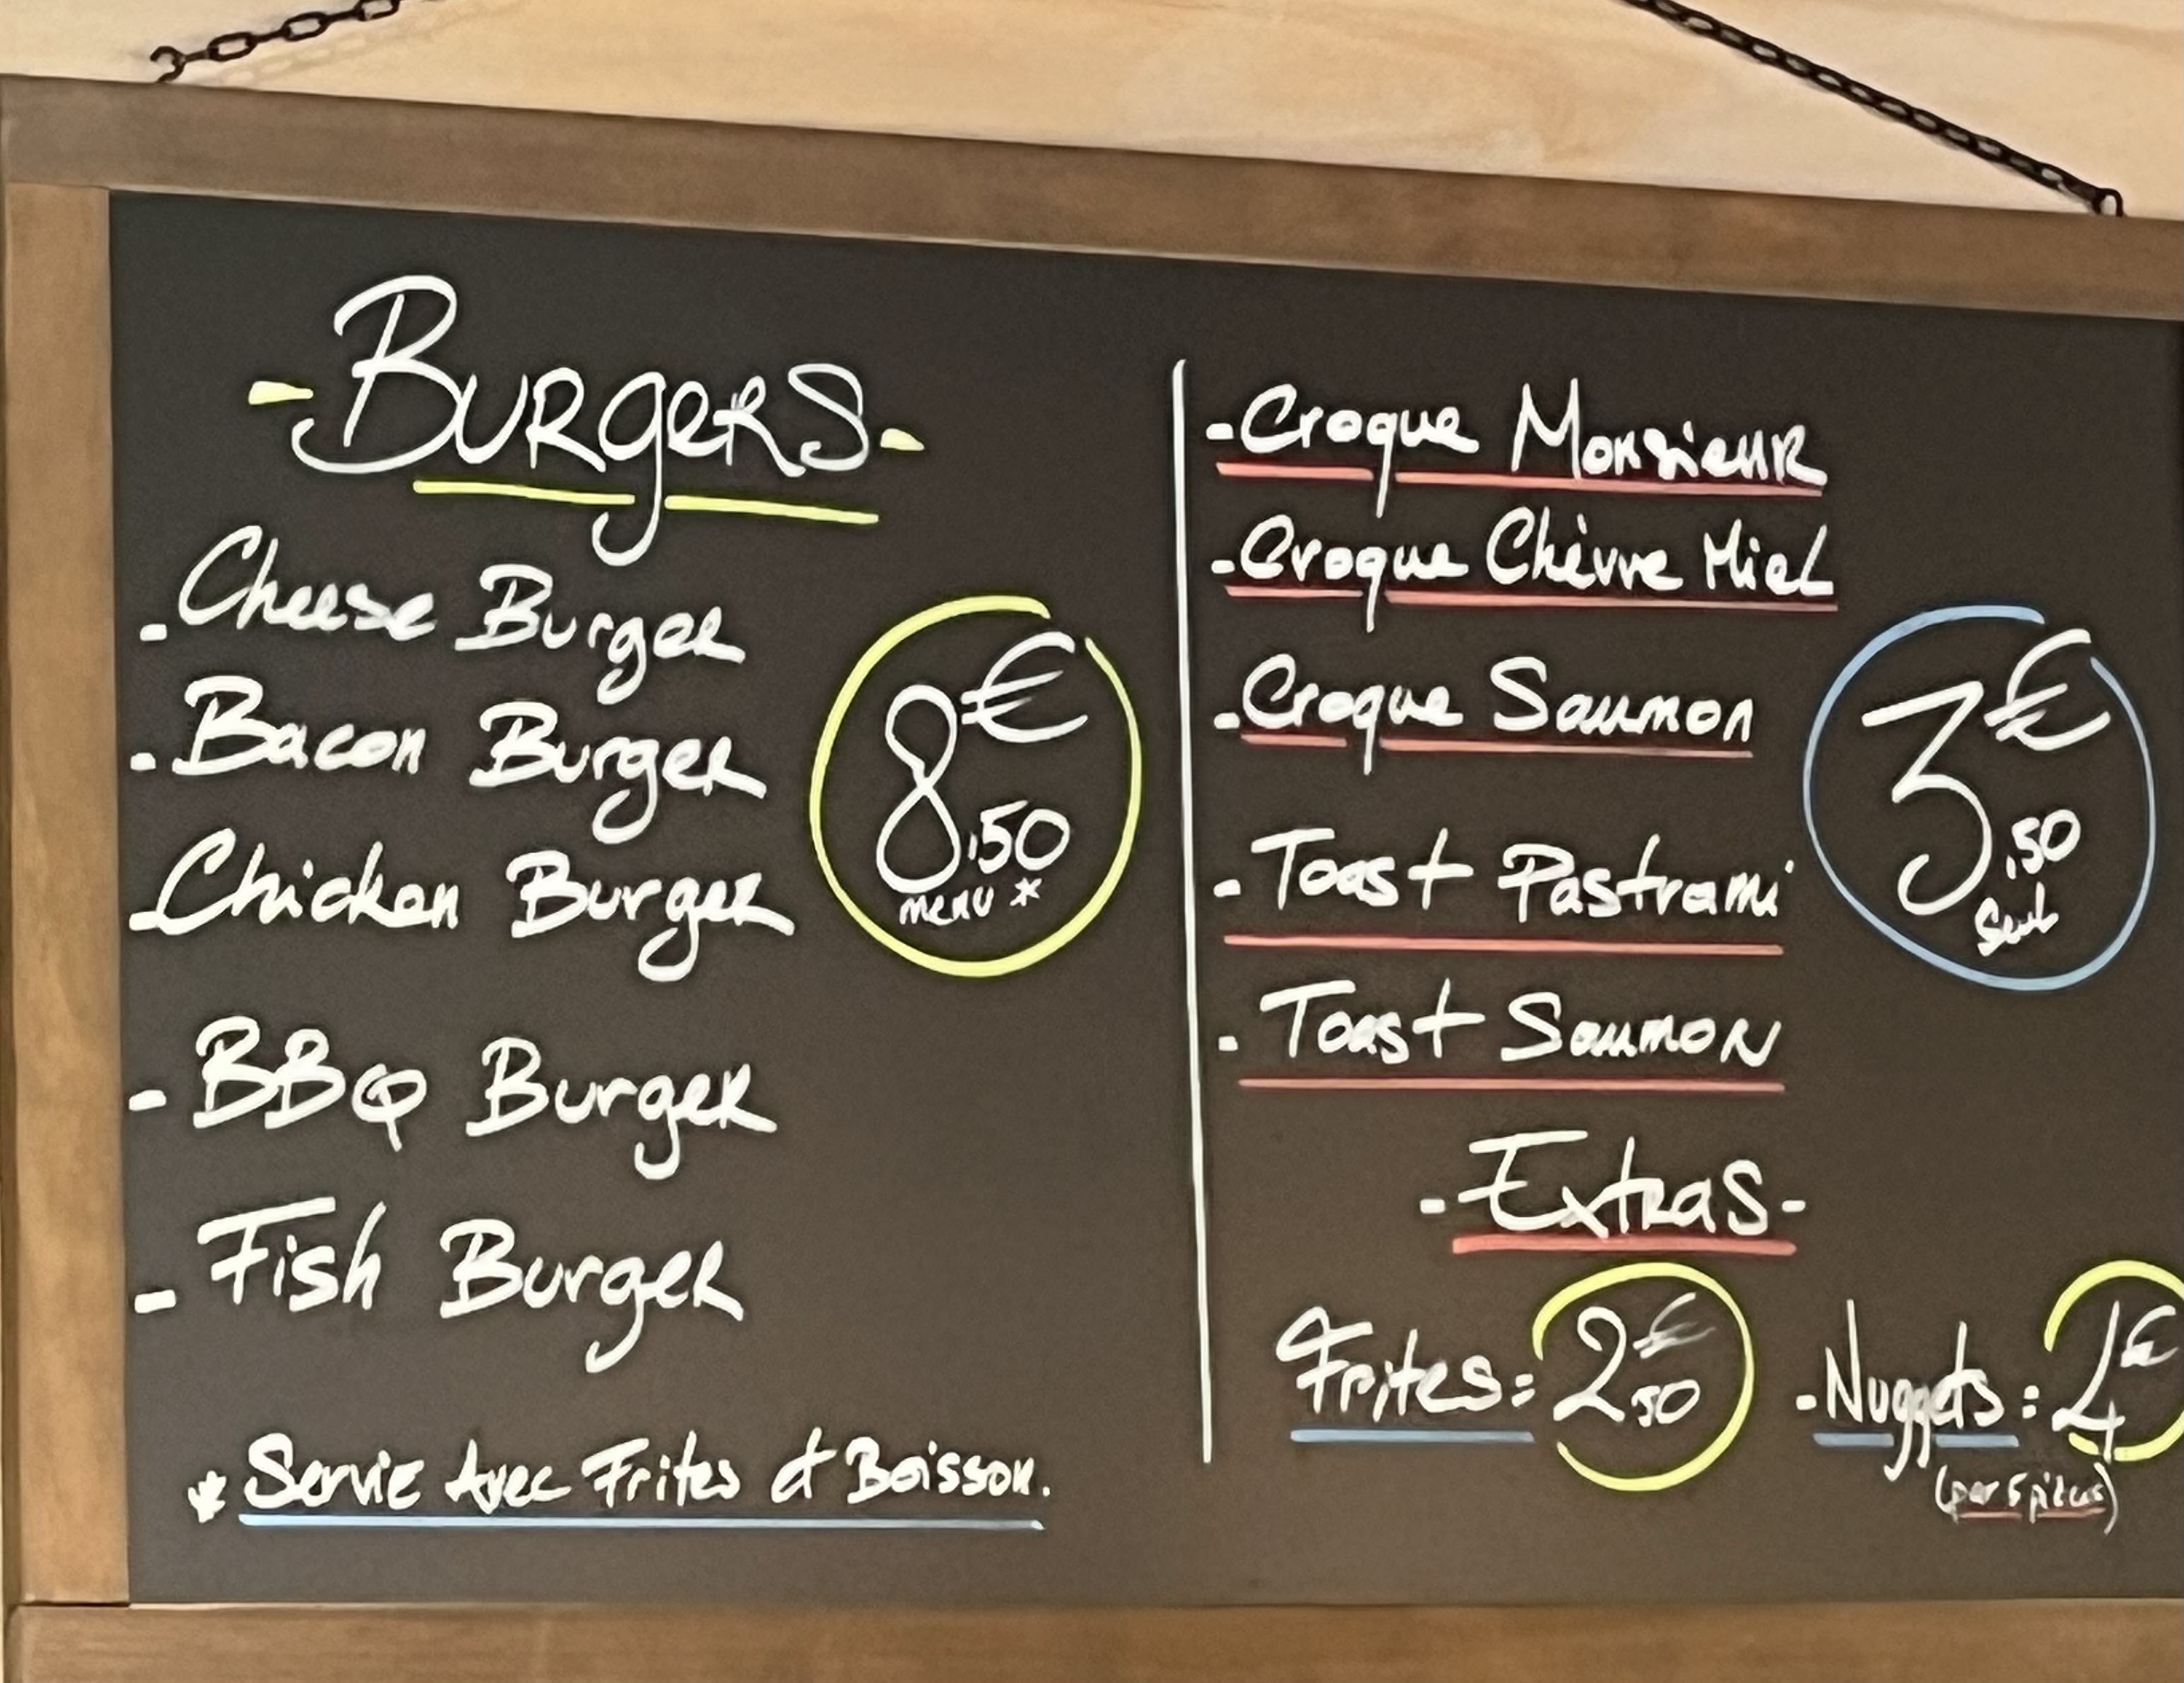 - BURGERS -
- Cheese Burger
- Bacon Burger
- Chicken Burger
- BBQ Burger
- Fish Burger
8€,50
menu *
* Servie Avec Frites et Boisson.
- Croque Monsieur
- Croque Chèvre Miel
- Croque Saumon
- Toast Pastrami
- Toast Saumon
3€,50
Seul
- Extras -
Frites = 2€50
- Nuggets : 4€
(par 5 pièces)